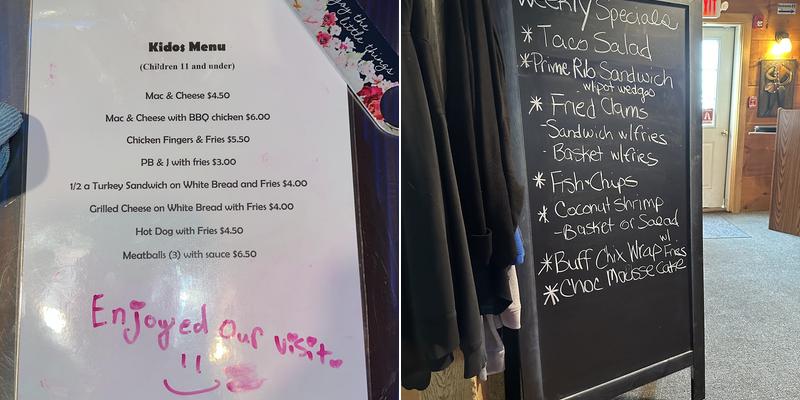 Kidos Menu
(Children 11 and under)
Mac & Cheese $4.50
Mac & Cheese with BBQ chicken $6.00
Chicken Fingers & Fries $5.50
PB & J with fries $3.00
1/2 a Turkey Sandwich on White Bread and Fries $4.00
Grilled Cheese on White Bread with Fries $4.00
Hot Dog with Fries $4.50
Meatballs (3) with sauce $6.50
Enjoyed our visit.
the
little
things
Weekly Specials
* Taco Salad
* Prime Rib Sandwich
w/pot wedges
* Fried Clams
- Sandwich w/fries
- Basket w/fries
* Fish+Chips
* Coconut Shrimp
- Basket or Salad
* Buff Chix Wrap w/ Fries
* Choc Mousse Cake